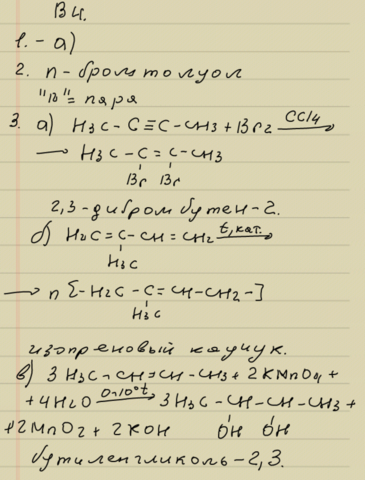 В4.
1. - а)
2. п - бромтолуол
"п" = пара
3. а) H₃C - C ≡ C - CH₃ + Br₂ CCl₄ →
→ H₃C - C = C - CH₃
Br Br
2,3-дибромбутен-2.
б) H₂C = C - CH = CH₂ t, кат. →
H₃C
→ n [-H₂C - C = CH - CH₂ -]
H₃C
изопреновый каучук.
в) 3 H₃C - CH = CH - CH₃ + 2 KMnO₄ +
+ 4H₂O 0-10° t → 3H₃C - CH - CH - CH₃ +
+ 2MnO₂ + 2KOH OH OH
бутиленгликоль - 2,3.